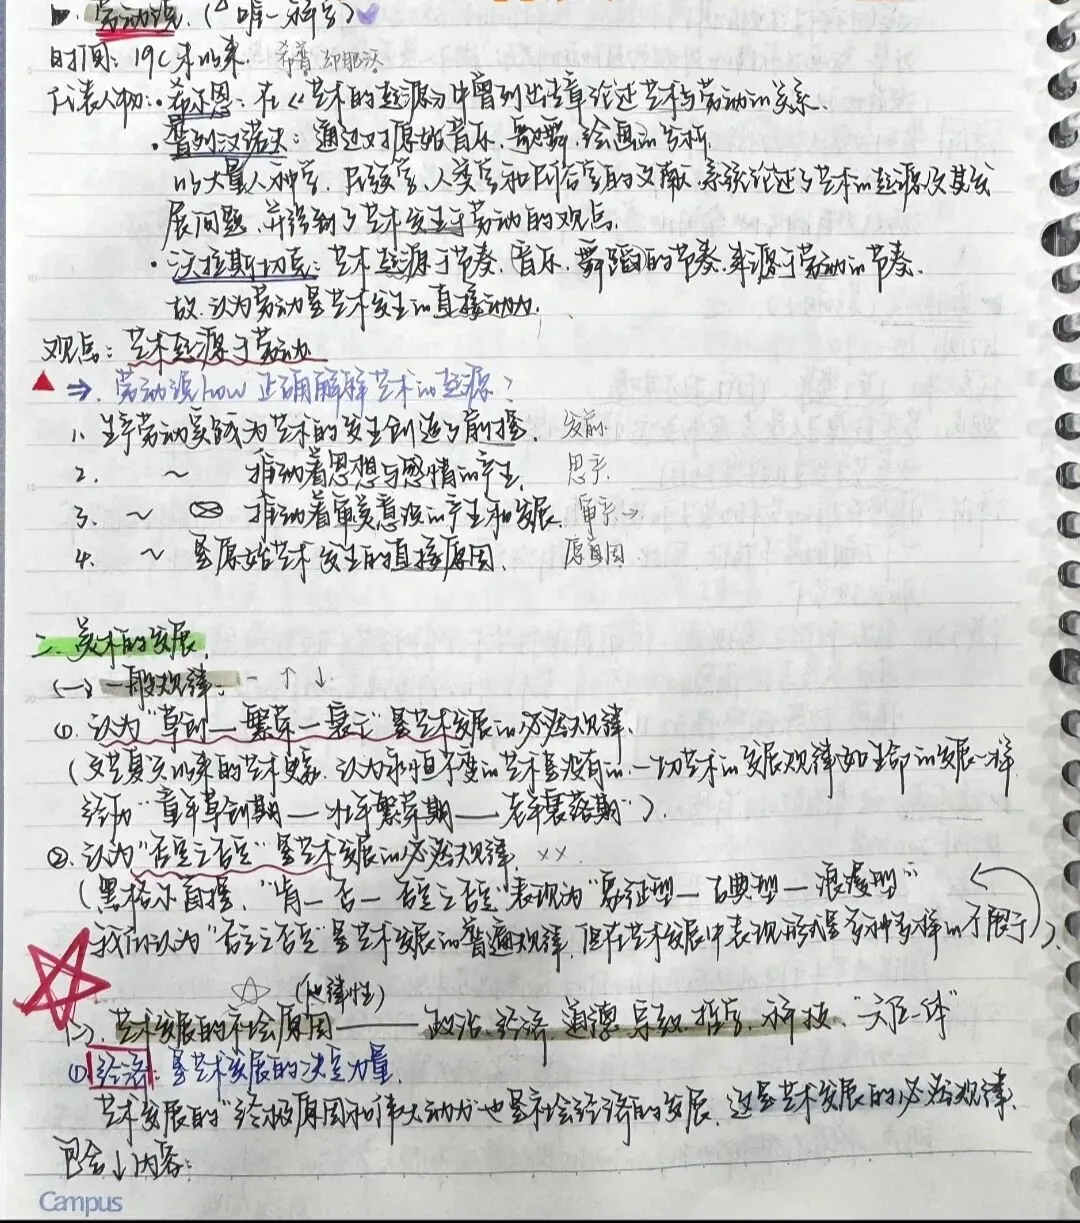 b. 劳动说. (唯一科学)
时间: 19C末以来. 希普却耶沃
代表人物: · 希尔恩: 在《艺术的起源》中曾列出专章论述艺术与劳动的关系.
· 普列汉诺夫: 通过对原始音乐、歌舞、绘画的分析.
以大量人种学、民族学、人类学和民俗学的文献、系统论述了艺术的起源及其发
展问题, 并得到了艺术发生于劳动的观点.
· 沃拉斯切克: 艺术起源于节奏, 音乐、舞蹈的节奏, 来源于劳动的节奏.
故. 认为劳动是艺术发生的直接动力.
观点: 艺术起源于劳动
▲ ⇒ 劳动说how正确解释艺术的起源?
1. 生产劳动实践为艺术的发生创造了前提. 发前
2. ~ 推动着思想与感情的产生. 思产.
3. ~ 推动着审美意识的产生和发展. 审产→
4. ~ 是原始艺术发生的直接原因. 原直因
二. 美术的发展.
(一) 一般规律: - ↑ ↓.
①. 认为"草创—繁荣—衰亡"是艺术发展的必然规律.
(文艺复兴以来的艺术史家. 认为永恒不变的艺术是没有的. 一切艺术的发展规律如生命的发展一样
经历"童年草创期——壮年繁荣期——老年衰落期").
②. 认为"否定之否定"是艺术发展的必然规律. ××
(黑格尔首提, "肯—否—否定之否定"表现为"象征型—古典型—浪漫型"
我们认为"否定之否定"是艺术发展的普遍规律, 但在艺术发展中表现形式是多种多样的 不限于).
☆ (他律性)
(二). 艺术发展的社会原因——政治、经济、道德、宗教、哲学、科技. "六位一体"
① 经济: 是艺术发展的决定力量.
艺术发展的"终极原因和伟大动力"也是社会经济的发展. 这是艺术发展的必然规律.
包含↓内容:
Campus